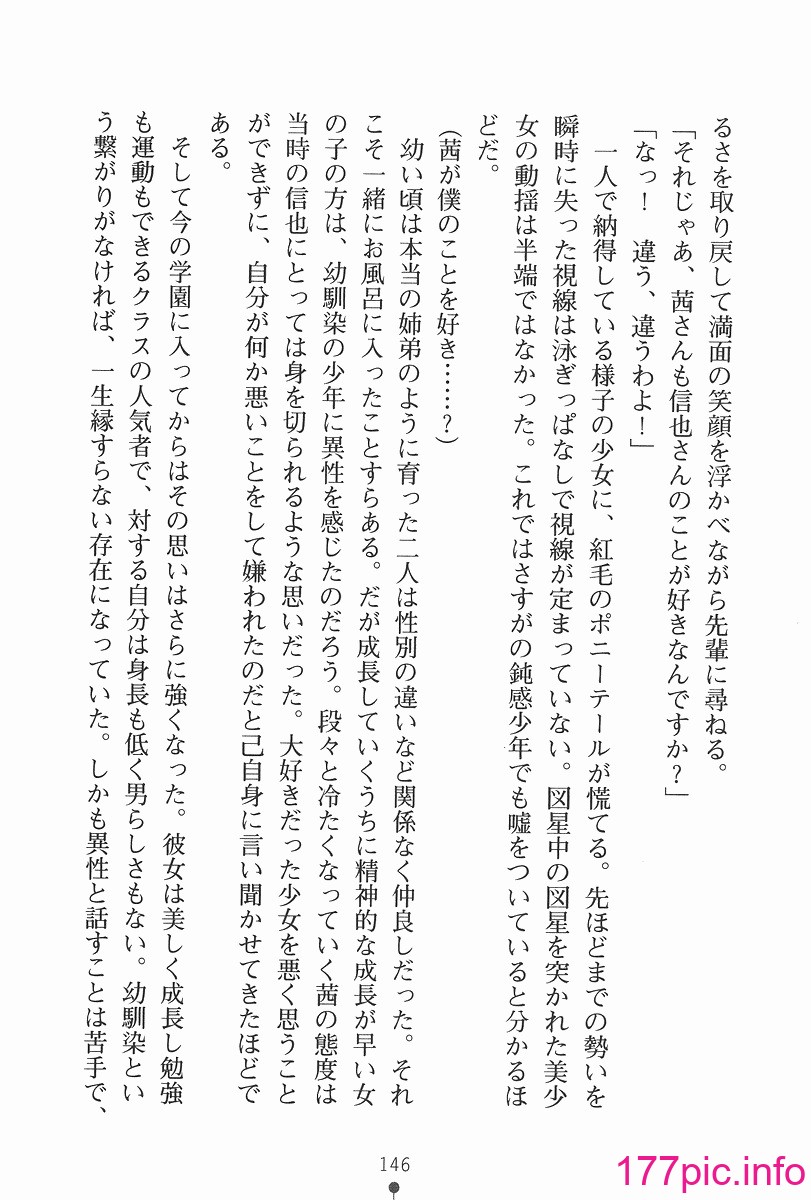 るさを取り戻して満面の笑顔を浮かべながら先輩に尋ねる。
「それじゃあ、茜さんも信也さんのことが好きなんですか？」
「なっ！　違う、違うわよ！」
一人で納得している様子の少女に、紅毛のポニーテールが慌てる。先ほどまでの勢いを
瞬時に失った視線は泳ぎっぱなしで視線が定まっていない。図星中の図星を突かれた美少
女の動揺は半端ではなかった。これではさすがの鈍感少年でも嘘をついていると分かるほ
どだ。
（茜が僕のことを好き……？）
幼い頃は本当の姉弟のように育った二人は性別の違いなど関係なく仲良しだった。それ
こそ一緒にお風呂に入ったことすらある。だが成長していくうちに精神的な成長が早い女
の子の方は、幼馴染の少年に異性を感じたのだろう。段々と冷たくなっていく茜の態度は
当時の信也にとっては身を切られるような思いだった。大好きだった少女を悪く思うこと
ができずに、自分が何か悪いことをして嫌われたのだと己自身に言い聞かせてきたほどで
ある。
そして今の学園に入ってからはその思いはさらに強くなった。彼女は美しく成長し勉強
も運動もできるクラスの人気者で、対する自分は身長も低く男らしさもない。幼馴染とい
う繋がりがなければ、一生縁すらない存在になっていた。しかも異性と話すことは苦手で、
146
177pic.info